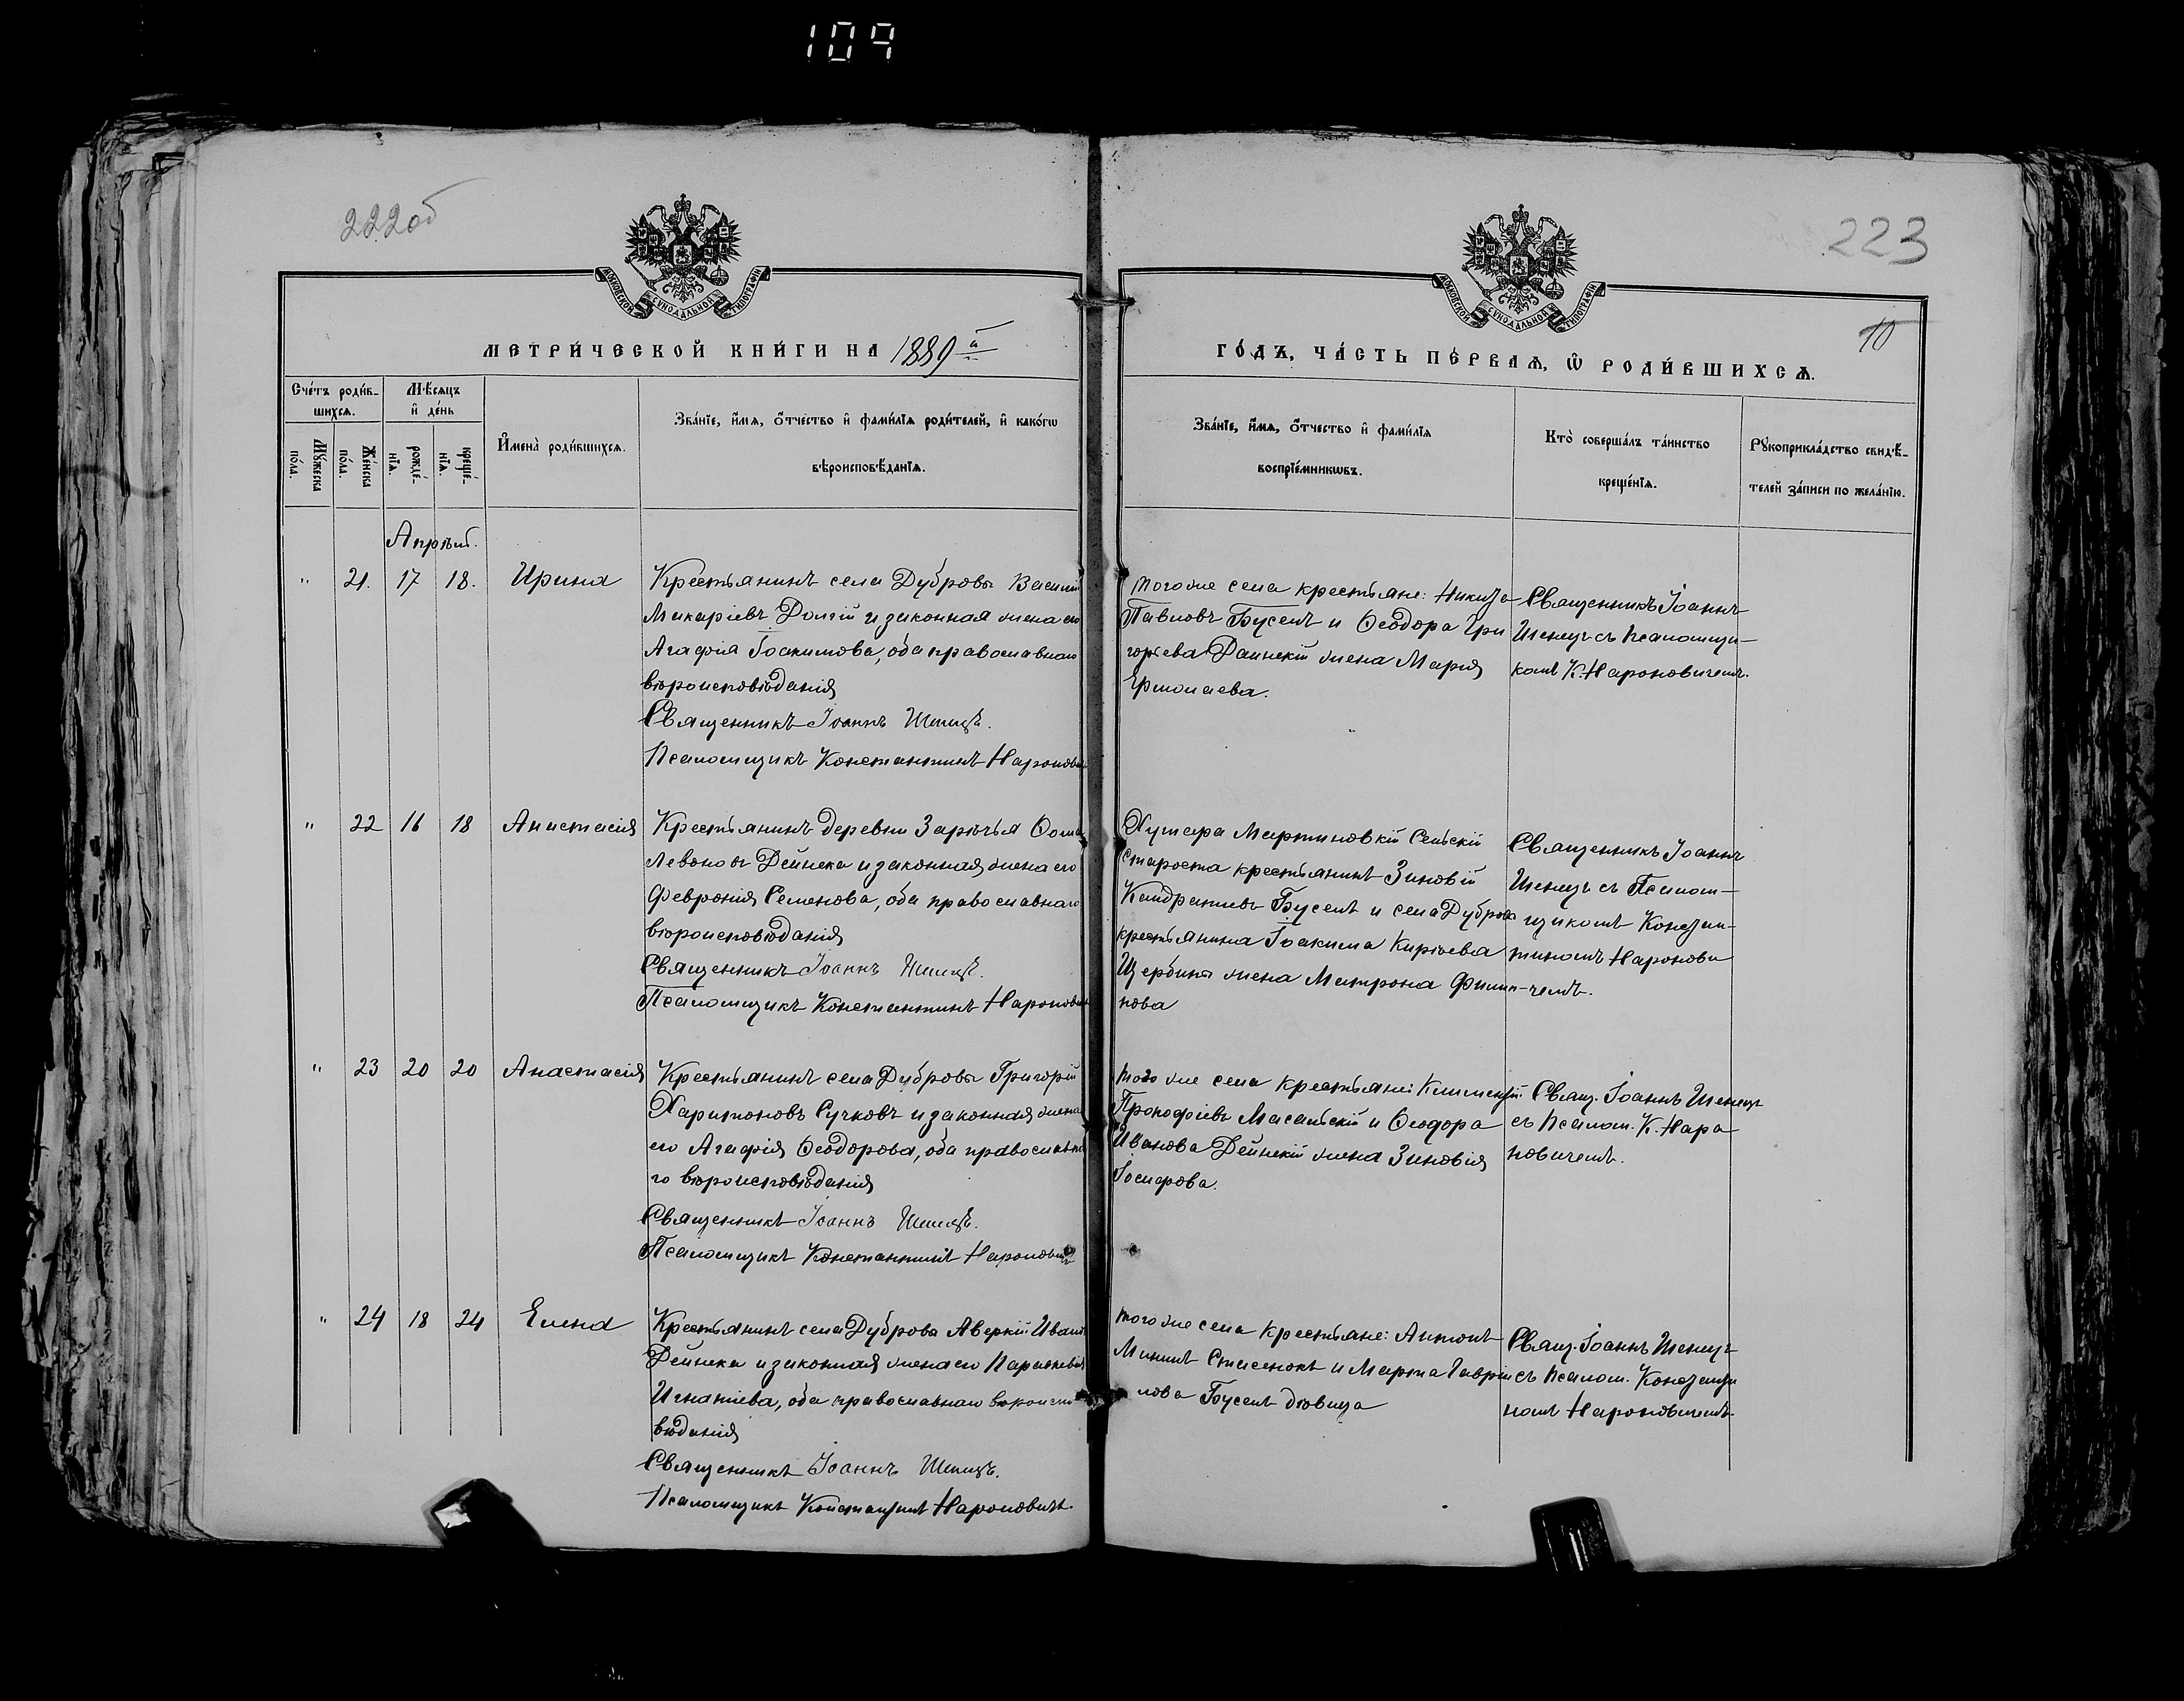 109
222об
223
МОСКОВСКОЙ СѴНОДАЛЬНОЙ ТИПОГРАФІИ
МОСКОВСКОЙ СѴНОДАЛЬНОЙ ТИПОГРАФІИ
10
МЕТРИ́ЧЕСКОЙ КНИ́ГИ НА 1889й
ГО́ДЪ, ЧА́СТЬ ПЕ́РВАѦ, Ѡ҆ РОДИ́ВШИХСѦ.
Сче́тъ роди́в-
шихсѧ.
Мꙋ́жеска
по́ла.
Же́нска
по́ла.
Мѣ́сѧцъ
и҆ де́нь
рожде́-
нїѧ.
креще́-
нїѧ.
И҆мена̀ роди́вшихсѧ.
Зва́нїе, и҆́мѧ, ѻ҆́тчество и҆ фами́лїѧ роди́телей, и҆ како́гѡ
вѣроисповѣ́данїѧ.
Зва́нїе, и҆́мѧ, ѻ҆́тчество и҆ фами́лїѧ
воспрїе́мникѡвъ.
Кто̀ соверша́лъ та́инство
креще́нїѧ.
Рꙋкоприкла́дство свидѣ́-
телей за́писи по жела́нїю.
Апрѣль.
" 21. 17 18. Ирина
Крестьянинъ села Дубровы Василій
Макаріевъ Долгій и законная жена его
Агафія Іоакимова, оба православнаго
вѣроисповѣданія
Священникъ Іоаннъ
Псаломщикъ Константинъ Нароновичъ
Тогоже села крестьяне: Никита
Павловъ Буселъ и Ѳеодора Гри
горьева жена Марія
Ермолаева.
Священникъ Іоаннъ
съ псаломщи-
комъ К. Нароновичемъ.
" 22 16 18 Анастасія
Крестьянинъ деревни Зарѣчья Ѳома
Левоновъ Дейнека и законная жена его
Феврония Семенова, оба православнаго
вѣроисповѣданія
Священникъ Іоаннъ
Псаломщикъ Константинъ Нароновичъ
Хутара Мартиновкій Сельскій
староста крестьянинъ Зиновій
Кондратіевъ Буселъ и села Дубровы
крестьянина Іоакима Киріева
Щербины жена Матрона Филип-
пова
Священникъ Іоаннъ
съ Псалом-
щикомъ Констан-
тиномъ Наронови-
чемъ.
" 23 20 20 Анастасія
Крестьянинъ села Дубровы Григорій
Харитоновъ Сучковъ и законная жена
его Агафія Ѳеодорова, оба православна
го вѣроисповѣданія
Священникъ Іоаннъ
Псаломщикъ Константинъ Нароновичъ
Того же села крестьяне: Климентій
Прокофіевъ Масальскій и Ѳеодора
Иванова Дейнекій жена Зиновія
Іосифова.
Свящ. Іоаннъ
съ псалом. К. Наро
новичемъ.
" 24 18 24 Елена
Крестьянинъ села Дуброва Аверкій Иванов
Дейнека и законная жена его Параскевія
Игнатіева, оба православнаго вѣроиспо
вѣданія
Священникъ Іоаннъ
Псаломщикъ Константинъ Нароновичъ.
Того же села крестьяне: Антонъ
Мининъ Стасенокъ и Марта Гаври
лова Буселъ дѣвица
Свящ. Іоаннъ
съ псалом. Константи
номъ Нароновичемъ